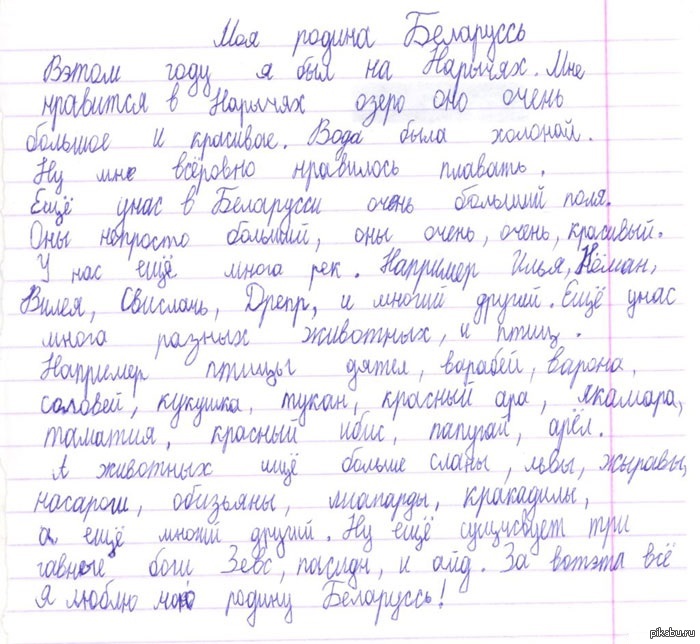 Моя родина Беларуссь
Вэтом году я был на Нарычях. Мне
нравится в Нарычях озеро оно очень
большое и красивае. Вода была холоной.
Ну мне всёровно нравилось плавать.
Ещё унас в Беларусси очень большии поля.
Оны непросто большии, оны очень, очень, красивый.
У нас ещё многа рек. Например Илья, Нёман,
Вилея, Свислачь, Дрепр, и многий другий. Ещё унас
многа разных животных, и птиц.
Например птицы дятел, варабей, варона,
соловей, кукушка, тукан, красный ара, якамара,
таматия, красный ибис, папугай, арёл.
А животных ищё больше сланы, львы, жыравы,
насароги, обизьяны, лиапарды, кракадилы,
а ещё многий другий. Ну ещё сущисвует три
гавные боги Зевс, пасидн, и айд. За вотэта всё
Я люблю мою родину Беларуссь!
pikabu.ru